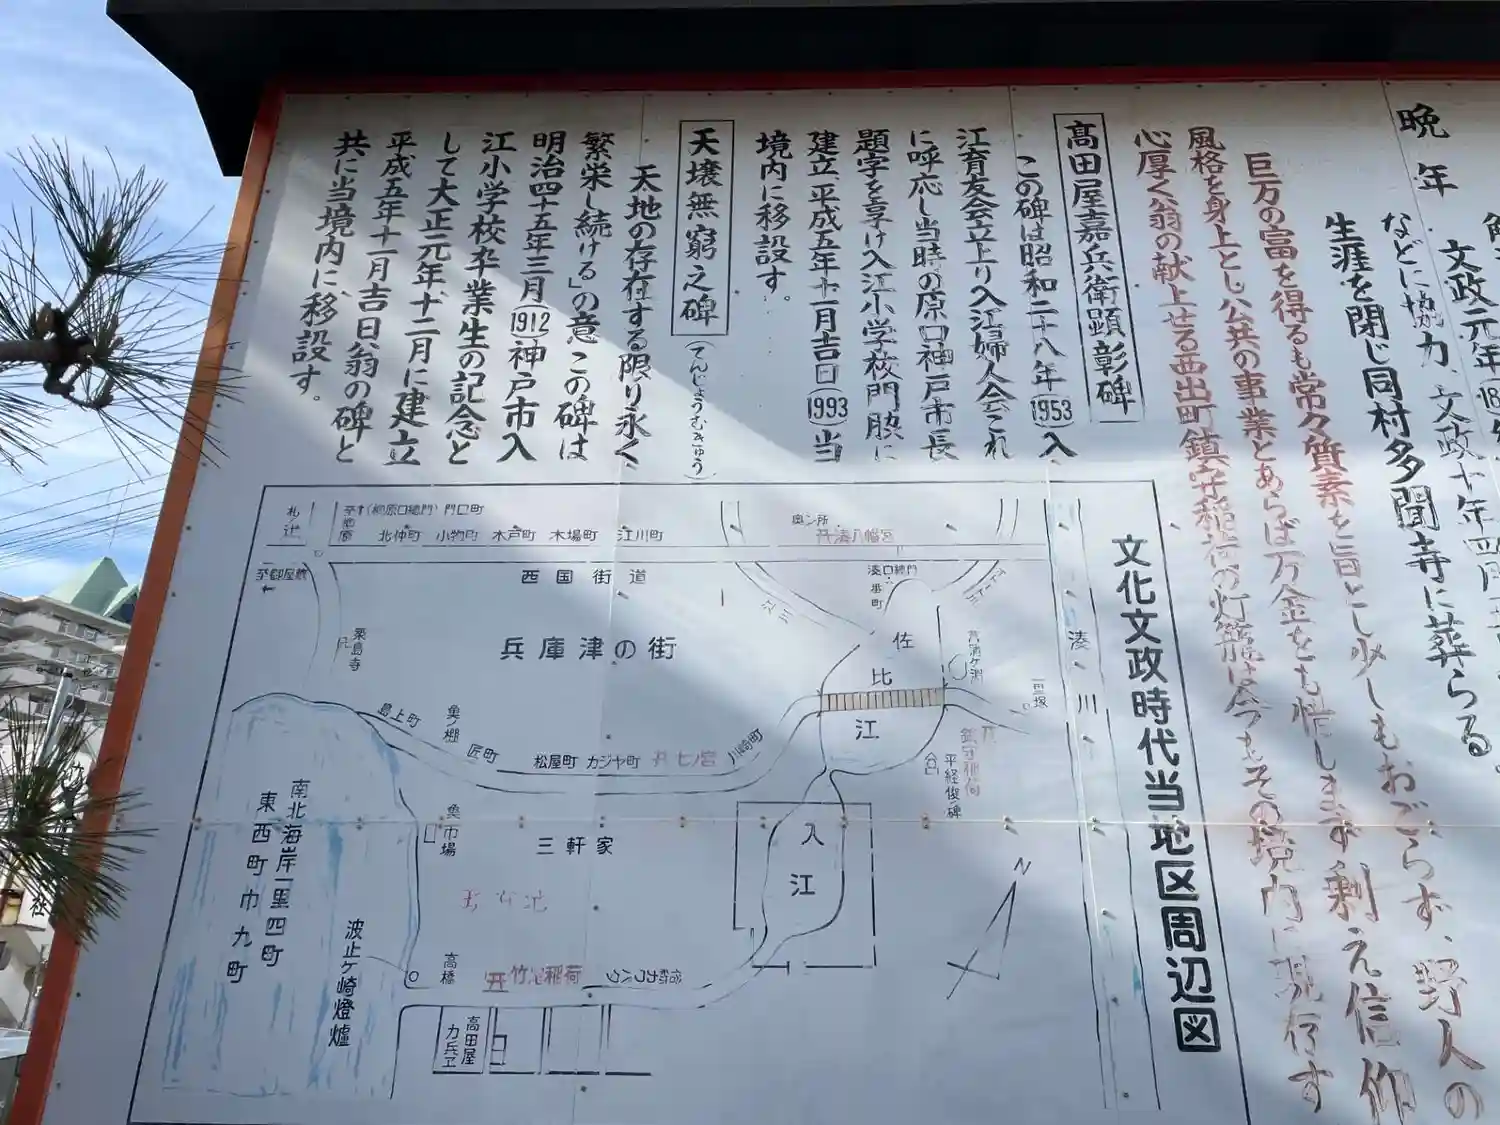 晩年
文政元年
などに協力、文政十年四月
生涯を閉じ同村多聞寺に葬らる
巨万の富を得るも常々質素を旨とし少しもおごらず、野人の
風格を身上とし公共の事業とあらば万金をも惜しまず剰え信仰
心厚く翁の献上せる西出町鎮守稲荷の灯籠は今もその境内に現存す
高田屋嘉兵衛顕彰碑
この碑は昭和二十八年(1953)入
江育友会立上り入江婦人会これ
に呼応し当時の原口神戸市長
題字を享け入江小学校門脇に
建立 平成五年十一月吉日(1993)当
境内に移設す。
天壌無窮之碑
(てんじょうむきゅう)
天地の存在する限り永く
繁栄し続ける」の意 この碑は
明治四十五年三月(1912)神戸市入
江小学校卒業生の記念と
して大正元年十二月に建立
平成五年十一月吉日翁の碑と
共に当境内に移設す。
文化文政時代当地区周辺図
札ノ辻
門口町
北仲町
小物町
木戸町
木場町
江川町
湊八幡宮
西国街道
湊口総門
一番町
兵庫津の街
佐比江
湊川
一里塚
島上町
魚ノ棚
匠町
松屋町
カジヤ町
七ノ宮
川崎町
鎮守稲荷
平経俊ノ碑
魚市場
三軒家
入江
N
南北海岸一里四町
東西町巾九町
波止ケ崎燈爐
高橋
稲荷
高田屋
カ兵ヱ